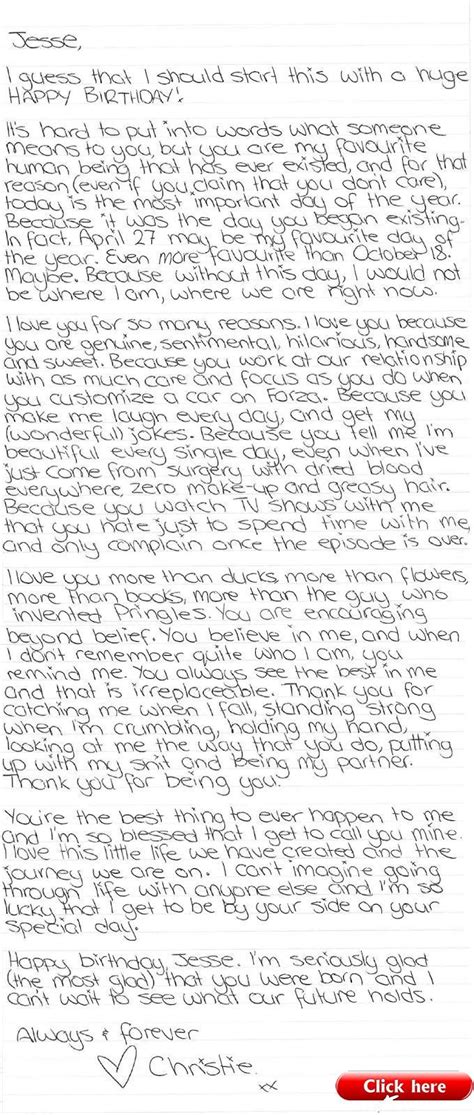 Jesse,
I guess that I should start this with a huge
HAPPY BIRTHDAY!
It's hard to put into words what someone
means to you, but you are my favourite
human being that has ever existed, and for that
reason (even if you claim that you don't care),
today is the most important day of the year.
Because it was the day you began existing.
In fact, April 27 may be my favourite day of
the year. Even more favourite than October 18.
Maybe. Because without this day, I would not
be where I am, where we are right now.
I love you for so many reasons. I love you because
you are genuine, sentimental, hilarious, handsome
and sweet. Because you work at our relationship
with as much care and focus as you do when
you customize a car on Forza. Because you
make me laugh every day, and get my
(wonderful) jokes. Because you tell me I'm
beautiful every single day, even when I've
just come from surgery with dried blood
everywhere, zero make-up and greasy hair.
Because you watch TV shows with me
that you hate just to spend time with me,
and only complain once the episode is over.
I love you more than ducks, more than flowers,
more than books, more than the guy who
invented Pringles. You are encouraging
beyond belief. You believe in me, and when
I don't remember quite who I am, you
remind me. You always see the best in me
and that is irreplaceable. Thank you for
catching me when I fall, standing strong
when I'm crumbling, holding my hand,
looking at me the way that you do, putting
up with my shit and being my partner.
Thank you for being you.
You're the best thing to ever happen to me
and I'm so blessed that I get to call you mine.
I love this little life we have created and the
journey we are on. I can't imagine going
through life with anyone else and I'm so
lucky that I get to be by your side on your
special day.
Happy birthday, Jesse. I'm seriously glad
(the most glad) that you were born and I
can't wait to see what our future holds.
Always & forever
Christie.
xx
Click here